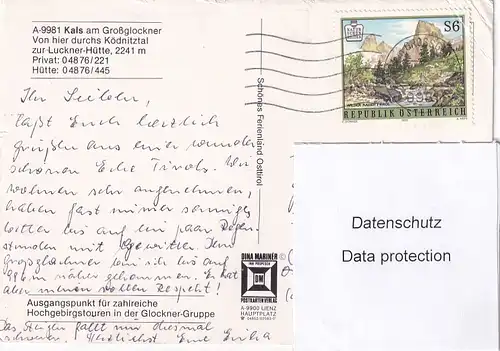 A-9981 Kals am Großglockner
Von hier durchs Ködnitztal
zur-Luckner-Hütte, 2241 m
Privat: 04876/221
Hütte: 04876/445
Ihr Lieben,
laßt Euch herzlich
grüßen aus einer wunder
schönen Ecke Tirols. Wir
wohnen sehr angenehm,
haben fast immer sonniges
Wetter bis auf ein paar Regen
stunden mit Gewitter. Dem
Großglockner bin ich bis auf
m näher gekommen. Er hat
aber meinen vollen Respekt!
Ausgangspunkt für zahlreiche
Hochgebirgstouren in der Glockner-Gruppe
Das Steigen fällt mir diesmal
schwer. Herzlichst Eure Erika
Schönes Ferienland Osttirol
DINA MARINER
DM
POSTKARTEN VERLAG
A-9900 LIENZ
HAUPTPLATZ
S6
REPUBLIK ÖSTERREICH
Datenschutz
Data protection